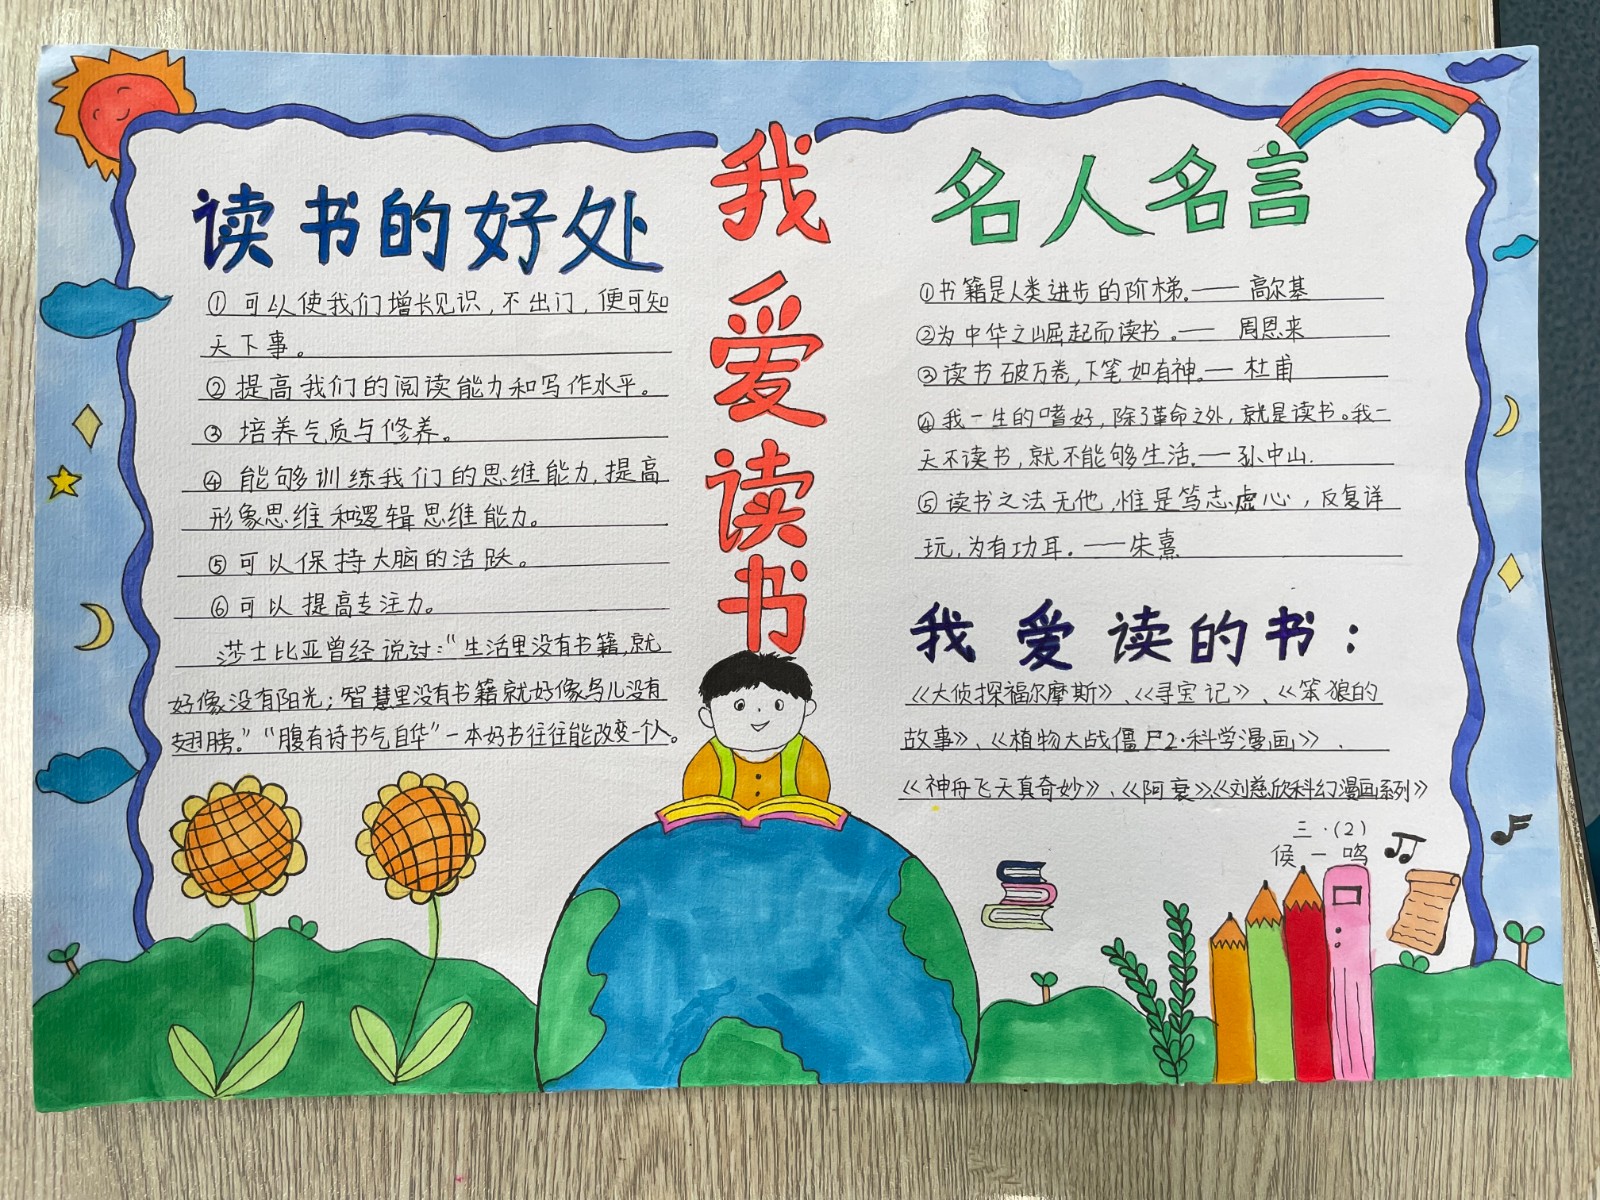 我爱读书
读书的好处
①可以使我们增长见识,不出门,便可知
天下事。
②提高我们的阅读能力和写作水平。
③培养气质与修养。
④能够训练我们的思维能力,提高
形象思维和逻辑思维能力。
⑤可以保持大脑的活跃。
⑥可以提高专注力。
莎士比亚曾经说过:“生活里没有书籍,就
好像没有阳光;智慧里没有书籍就好像鸟儿没有
翅膀。”“腹有诗书气自华”一本好书往往能改变一个人。
名人名言
①书籍是人类进步的阶梯.——高尔基
②为中华之崛起而读书。——周恩来
③读书破万卷,下笔如有神.—杜甫
④我一生的嗜好,除了革命之外,就是读书。我一
天不读书,就不能够生活.—孙中山.
⑤读书之法无他,惟是笃志虚心,反复详
玩,为有功耳。——朱熹
我爱读的书:
《大侦探福尔摩斯》、《寻宝记》、《笨狼的
故事》、《植物大战僵尸2·科学漫画》、
《神舟飞天真奇妙》、《阿衰》、《刘慈欣科幻漫画系列》
三·(2)
侯一鸣